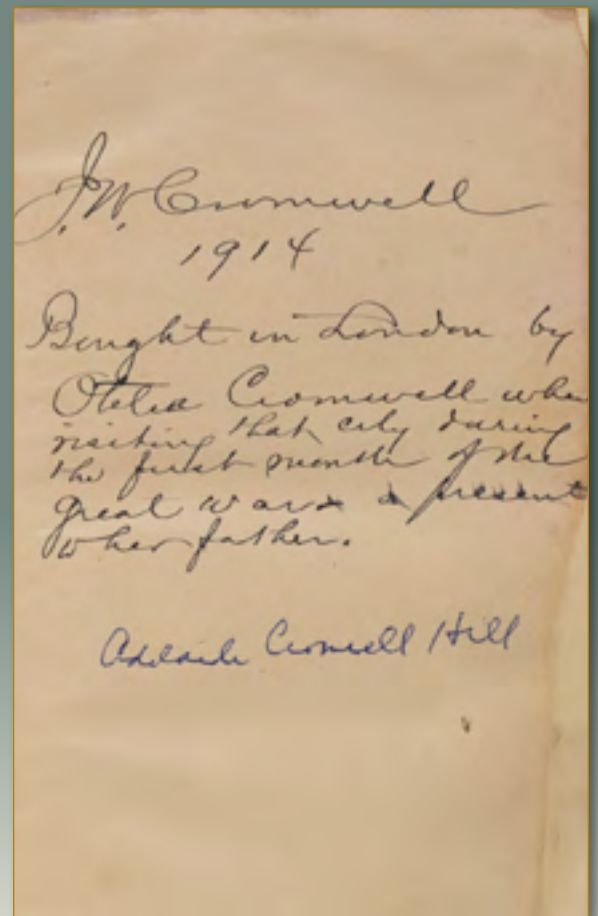 J.W. Cromwell
1914
Bought in London by
Otelia Cromwell when
visiting that city during
the first month of the
great war a present
to her father.
Adelaide Cromwell Hill